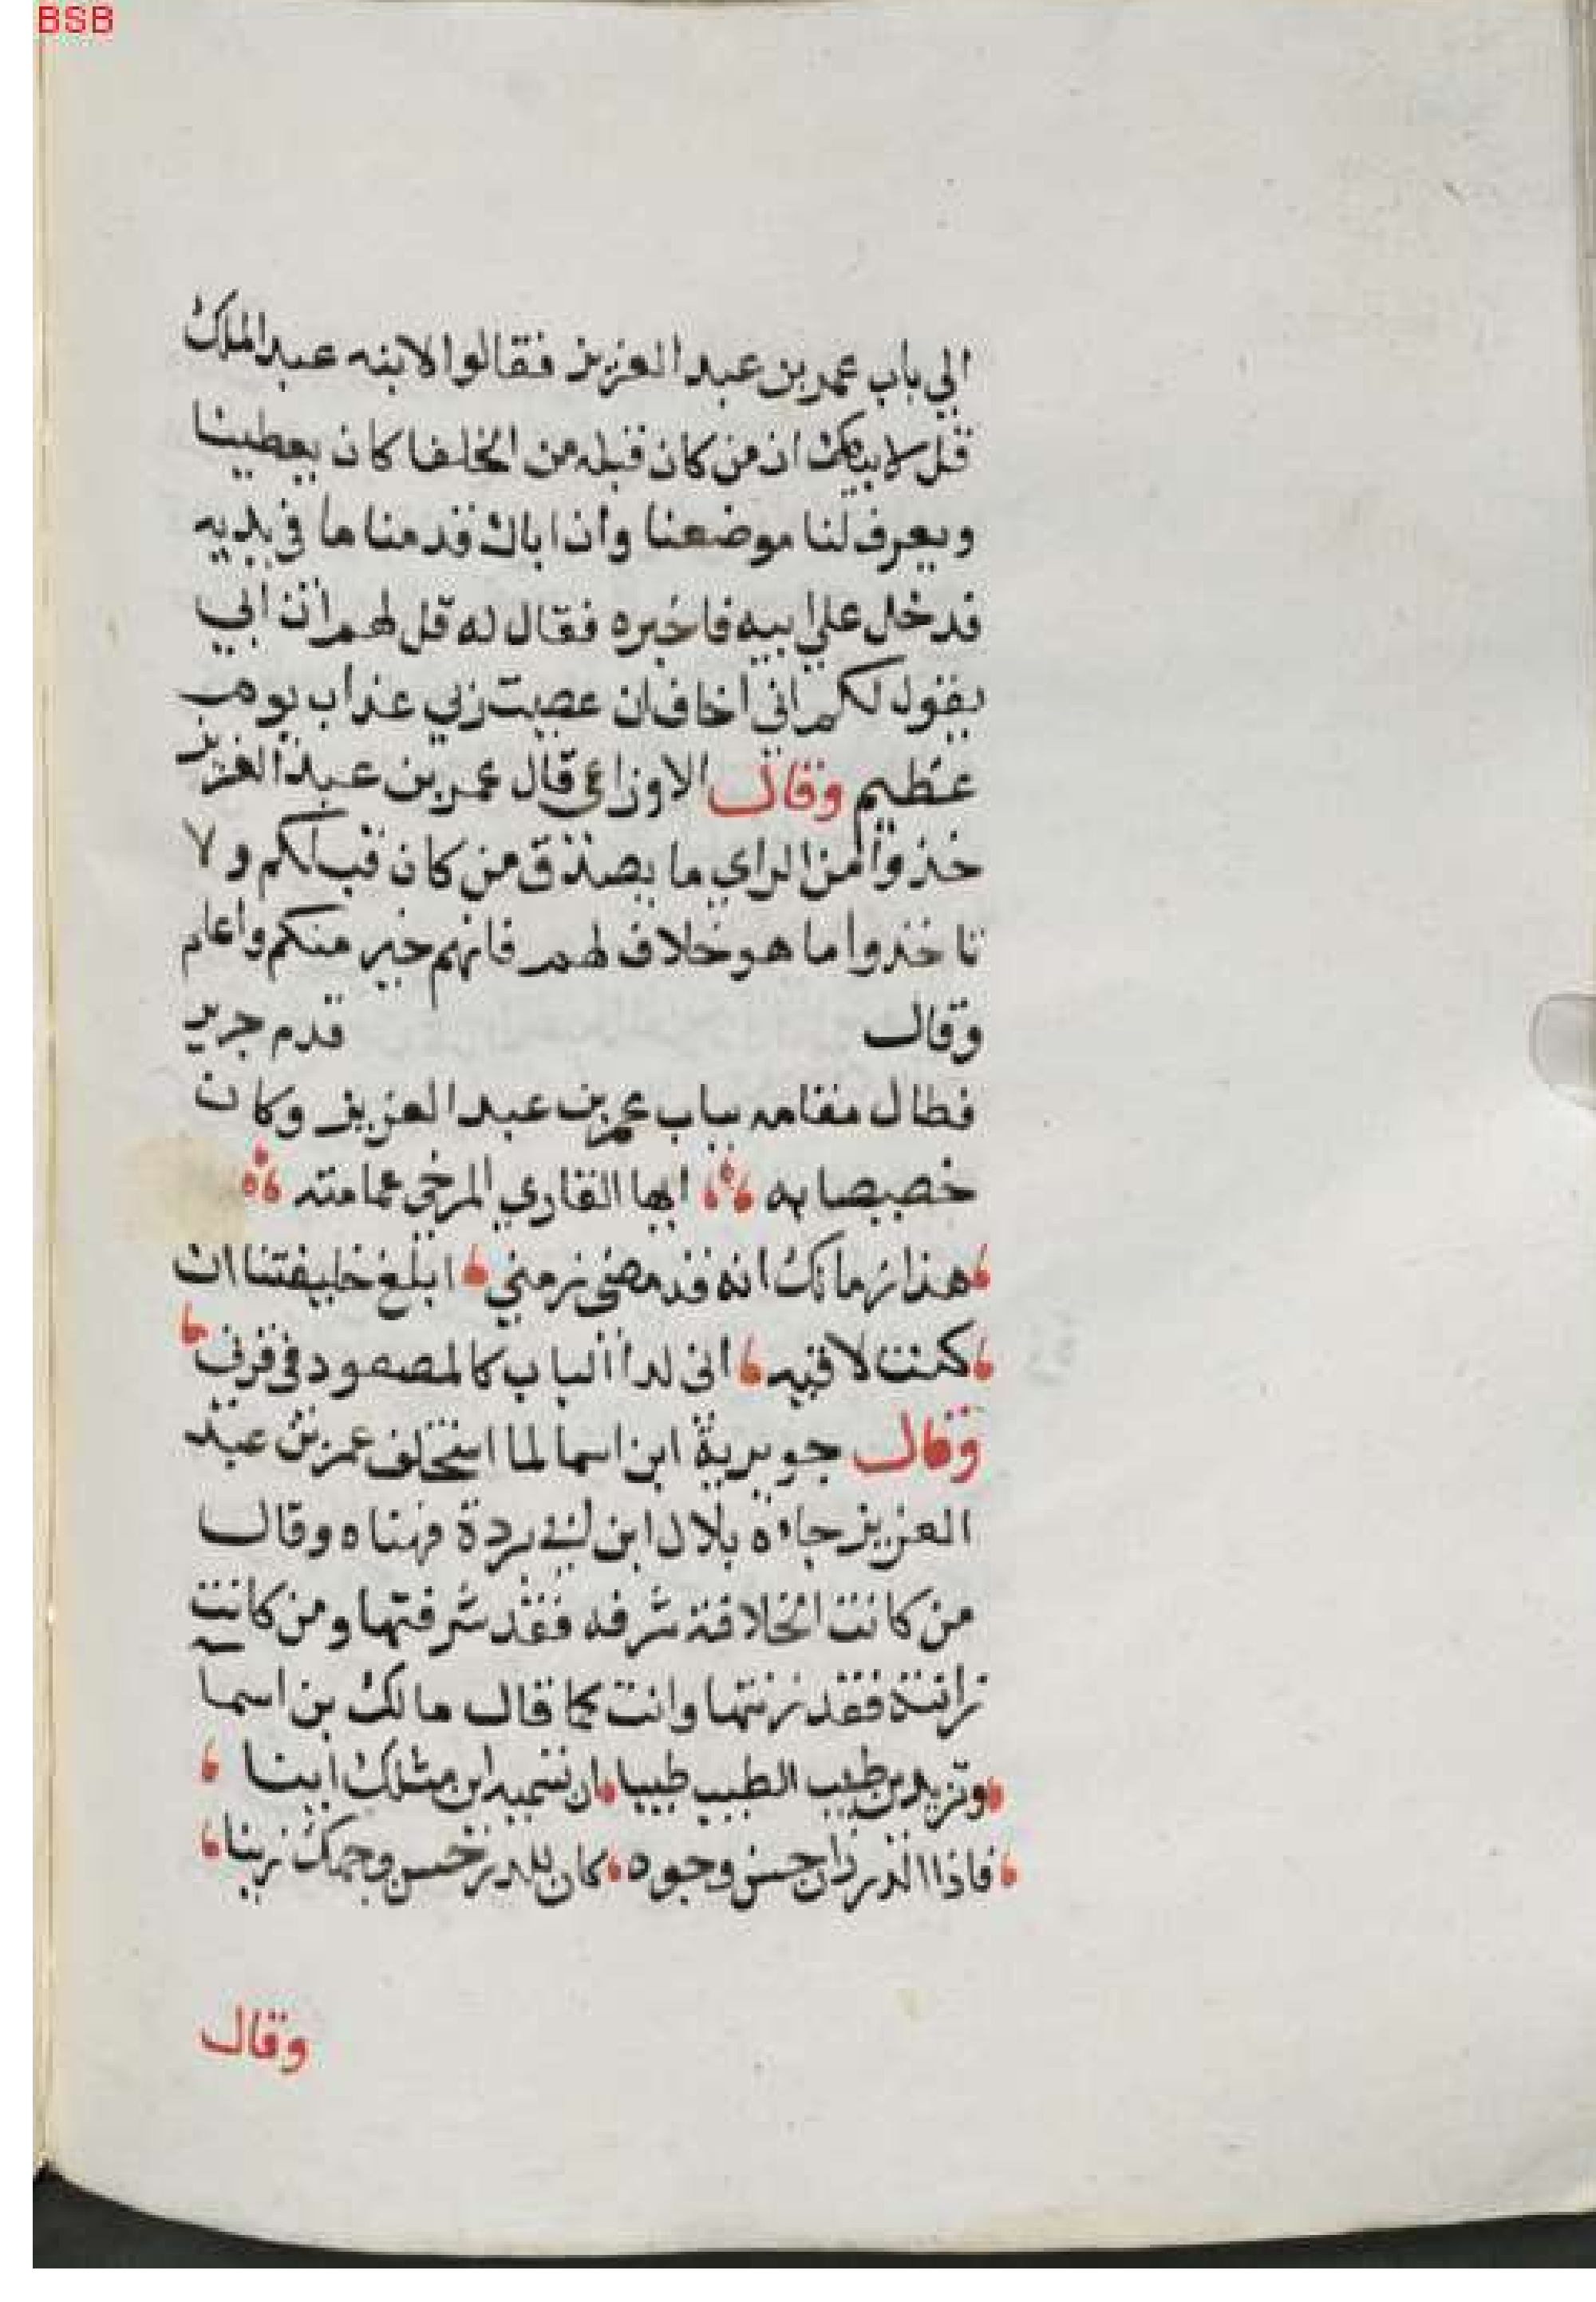 BSB
الي باب عمر بن عبد العزيز فقالوا لابنه عبد الملك
قل لابيك ان من كان قبله من الخلفا كان يعطينا
ويعرف لنا موضعنا وان اباك قد منا ما في يديه
فدخل علي ابيه فاخبره فقال له قل لهم ان ابي
يقول لكم اني اخاف ان عصيت ربي عذاب يوم
عظيم وقال الاوزاعي قال عمر بن عبد العزيز
خذوا من الراي ما يصدق من كان قبلكم ولا
تاخذوا ما هو خلاف لهم فانهم خير منكم واعلم
وقال قدم جرير
فطال مقامه بباب عمر بن عبد العزيز وكان
خصيصا به ايها القاري المرخي عمامته
هذا زمانك انه قد مضي زمني ابلغ خليفتنا ان
كنت لاقيه اني لدا الباب كالمصعود في قرن
وقال جويرية ابن اسما لما استخلف عمر بن عبد
العزيز جاءه بلال ابن ابي بردة فهناه وقال
من كانت الخلافة شرفه فقد شرفتها ومن كانت
زانته فقد زنتها وانت كما قال مالك بن اسما
وتزيدين طيب الطيب طيبا ان تشميه اين مثلك اينا
فاذا الدر زان حسن وجوه كان للدر حسن وجهك زينا
وقال